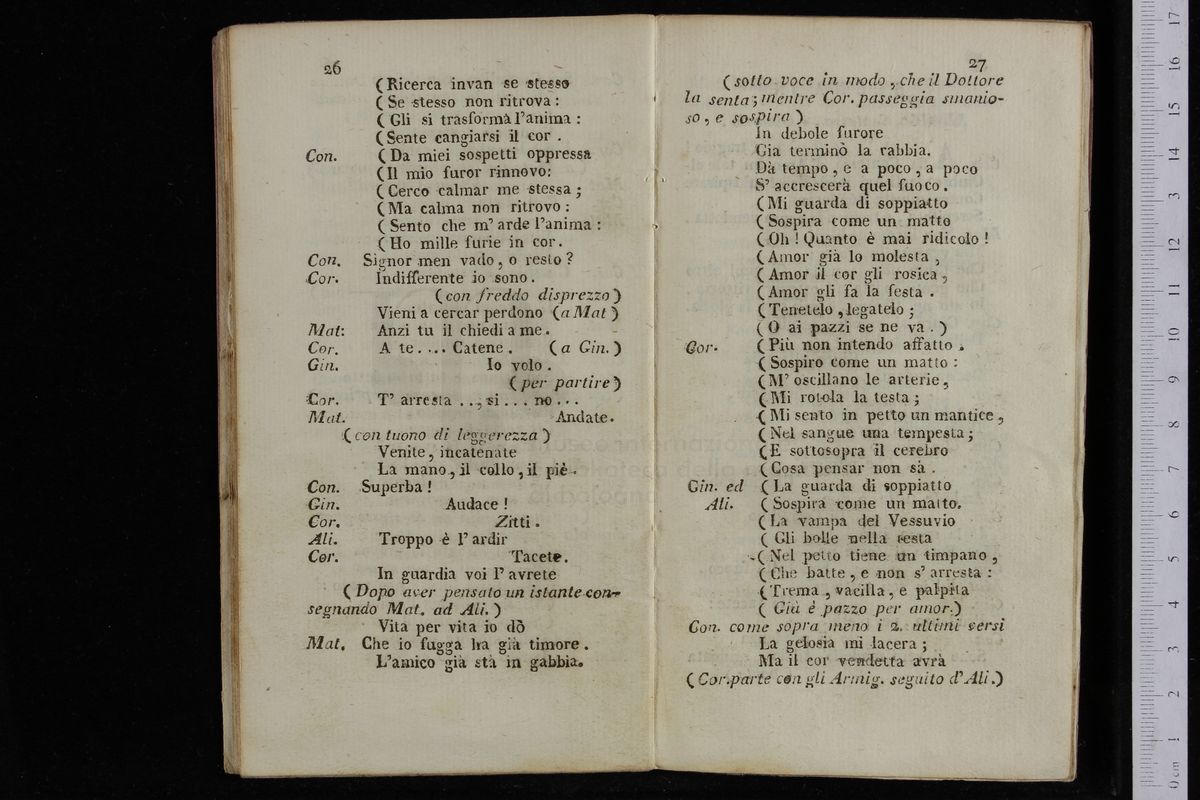 26
(Ricerca invan se stesso
(Se stesso non ritrova:
(Gli si trasforma l'anima:
(Sente cangiarsi il cor.
Con. (Da miei sospetti oppressa
(Il mio furor rinnovo:
(Cerco calmar me stessa;
(Ma calma non ritrovo:
(Sento che m'arde l'anima:
(Ho mille furie in cor.
Con. Signor men vado, o resto?
Cor. Indifferente io sono.
(con freddo disprezzo)
Vieni a cercar perdono (a Mat)
Mat: Anzi tu il chiedi a me.
Cor. A te.... Catene. (a Gin.)
Gin. Io volo.
(per partire)
Cor. T'arresta ... si... no...
Mat. Andate.
(con tuono di leggerezza)
Venite, incatenate
La mano, il collo, il piè.
Con. Superba!
Gin. Audace!
Cor. Zitti.
Ali. Troppo è l'ardir
Cor. Tacete.
In guardia voi l'avrete
(Dopo aver pensato un istante con-
segnando Mat. ad Ali.)
Vita per vita io dò
Mat. Che io fugga ha già timore.
L'amico già stà in gabbia.
27
(sotto voce in modo, che il Dottore
la senta; mentre Cor. passeggia smanio-
so, e sospira)
In debole furore
Gia terminò la rabbia.
Dà tempo, e a poco, a poco
S'accrescerà quel fuoco.
(Mi guarda di soppiatto
(Sospira come un matto
(Oh! Quanto è mai ridicolo!
(Amor già lo molesta,
(Amor il cor gli rosica,
(Amor gli fa la festa.
(Tenetelo, legatelo;
(O ai pazzi se ne va.)
Cor. (Più non intendo affatto.
(Sospiro come un matto:
(M'oscillano le arterie,
(Mi rotola la testa;
(Mi sento in petto un mantice,
(Nel sangue una tempesta;
(E sottosopra il cerebro
(Cosa pensar non sà.
Gin. ed (La guarda di soppiatto
Ali. (Sospira come un matto.
(La vampa del Vessuvio
(Gli bolle nella testa
(Nel petto tiene un timpano,
(Che batte, e non s'arresta:
(Trema, vacilla, e palpita
(Già è pazzo per amor.)
Con. come sopra meno i 2. ultimi versi
La gelosia mi lacera;
Ma il cor vendetta avrà
(Cor. parte con gli Armig. seguito d'Ali.)